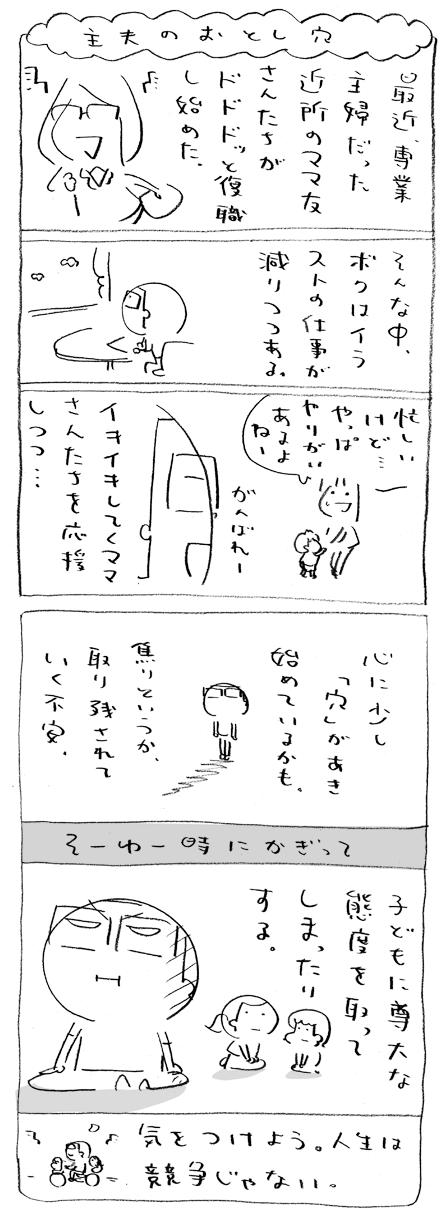 主夫のおとし穴
最近、専業
主婦だった
近所のママ友
さんたちが
ドドドッと復職
し始めた。
そんな中、
ボクはイラ
ストの仕事が
減りつつある。
忙しい
けど…
やっぱ
ヤリがい
あるよ
ねー
がんばれー
イキイキしてくママ
さんたちを応援
しつつ…
心に少し
「穴」があき
始めているかも。
焦りというか、
取り残されて
いく不安。
そーゆー時にかぎって
子どもに尊大な
態度を取って
しまったり
する。
気をつけよう。人生は
競争じゃない。